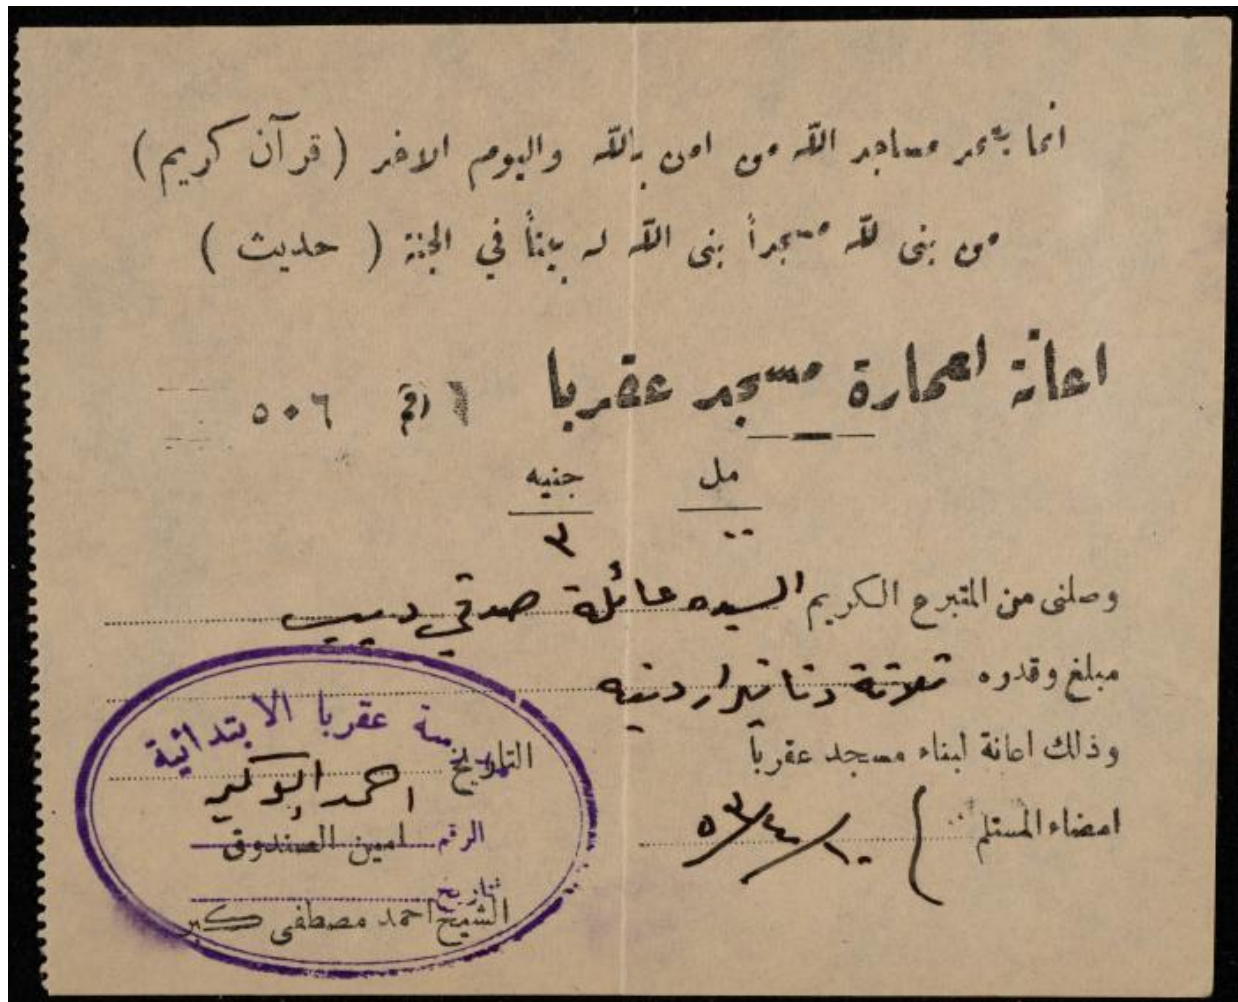 انما يعمر مساجد الله من امن بالله واليوم الاخر (قرآن كريم)
من بنى لله مسجداً بنى الله له بيتاً في الجنة (حديث)
اعانة لعمارة مسجد عقربا
رقم ٥٠٦
مل جنيه
.. ٣
وصلني من المتبرع الكريم السيده عائلة صدقي ديب
مبلغ وقدوه ثلاثة دنانير اردنيه
وذلك اعانة لبناء مسجد عقربا
امضاء المستلم
التاريخ
مدرسة عقربا الابتدائية
الرقم
تاريخ
امين الصندوق
الشيخ احمد مصطفى كبير